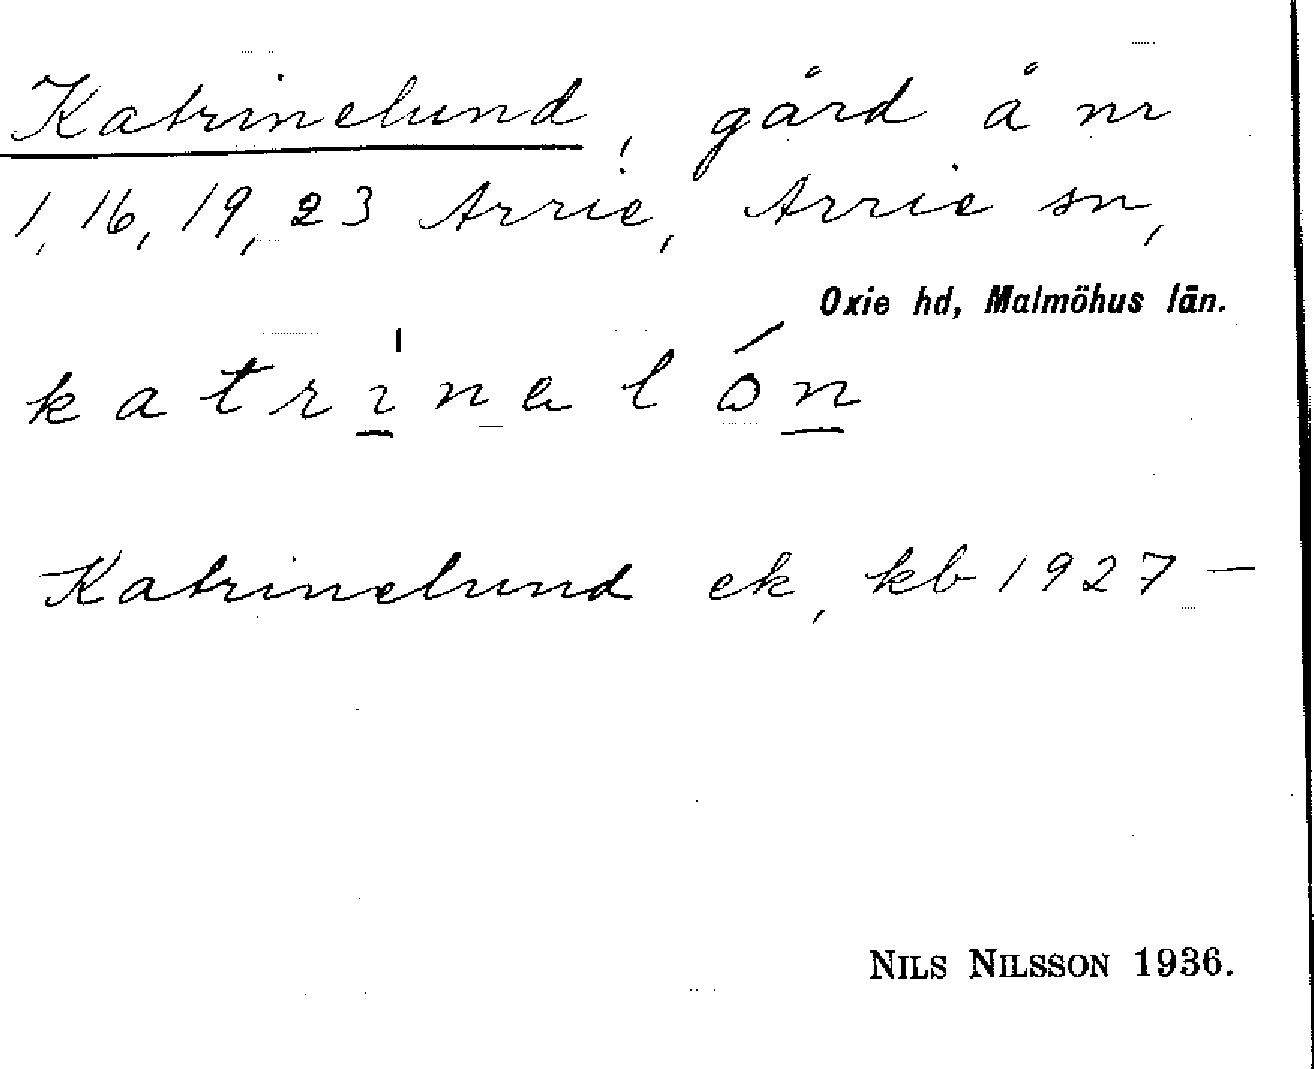 Katrinelund, gård å nr
1, 16, 19, 23 Arrie, Arrie sn,
Oxie hd, Malmöhus län.
katrìnəlón
Katrinelund ek, kb 1927 —
NILS NILSSON 1936.